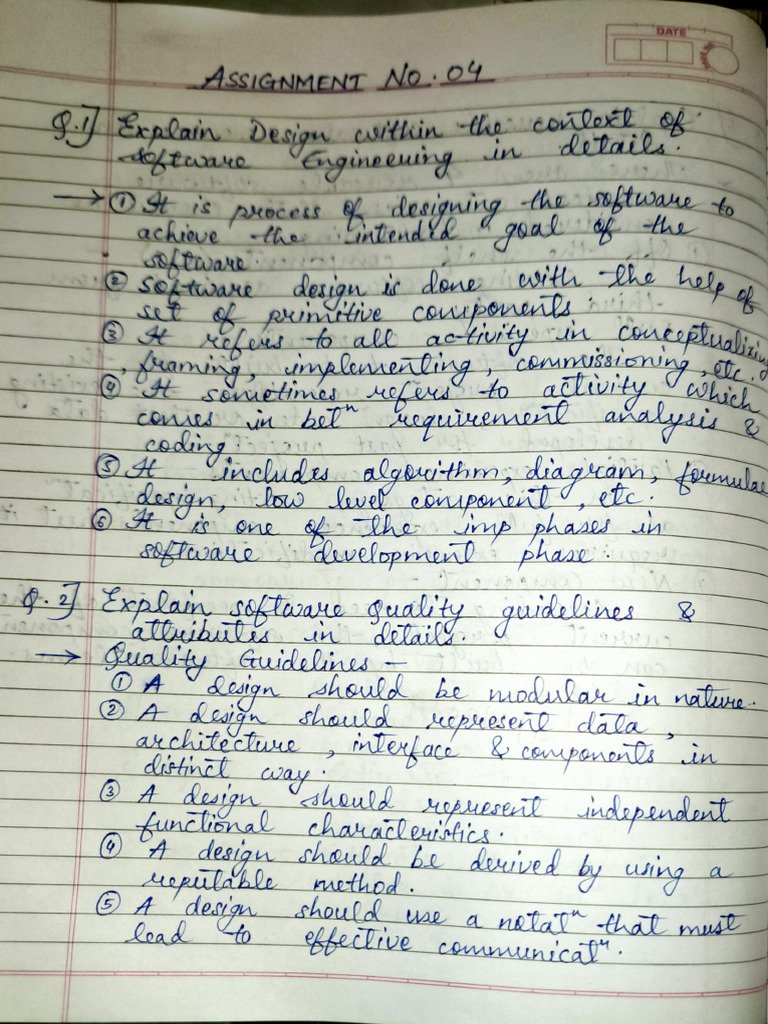 DATE
ASSIGNMENT NO. 04
Q.1] Explain Design within the context of
software Engineering in details.
→ ① It is process of designing the software to
achieve the intended goal of the
software.
② Software design is done with the help of
set of primitive components.
③ It refers to all activity in conceptualizing
, framing, implementing, commissioning, etc.
④ It sometimes refers to activity which
comes in betⁿ requirement analysis &
coding.
⑤ It includes algorithm, diagram, formulae
design, low level component, etc.
⑥ It is one of the imp phases in
software development phase.
Q.2] Explain software Quality guidelines &
attributes in details.
→ Quality Guidelines -
① A design should be modular in nature.
② A design should represent data,
architecture, interface & components in
distinct way.
③ A design should represent independent
functional characteristics.
④ A design should be derived by using a
reputable method.
⑤ A design should use a notatⁿ that must
lead to effective communicatⁿ.